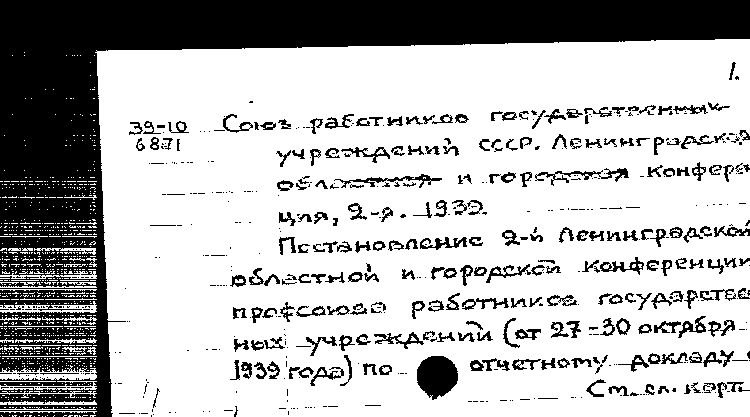 1.
39-10 Союз работников государственных
6871 учреждений СССР. Ленинградской
областная и городская конферен
ция, 2-я. 1939.
Постановление 2-й Ленинградской
областной и городской конференции
профсоюза работников государствен
ных учреждений (от 27-30 октября
1939 года) по отчетному докладу
См. сл. карт.